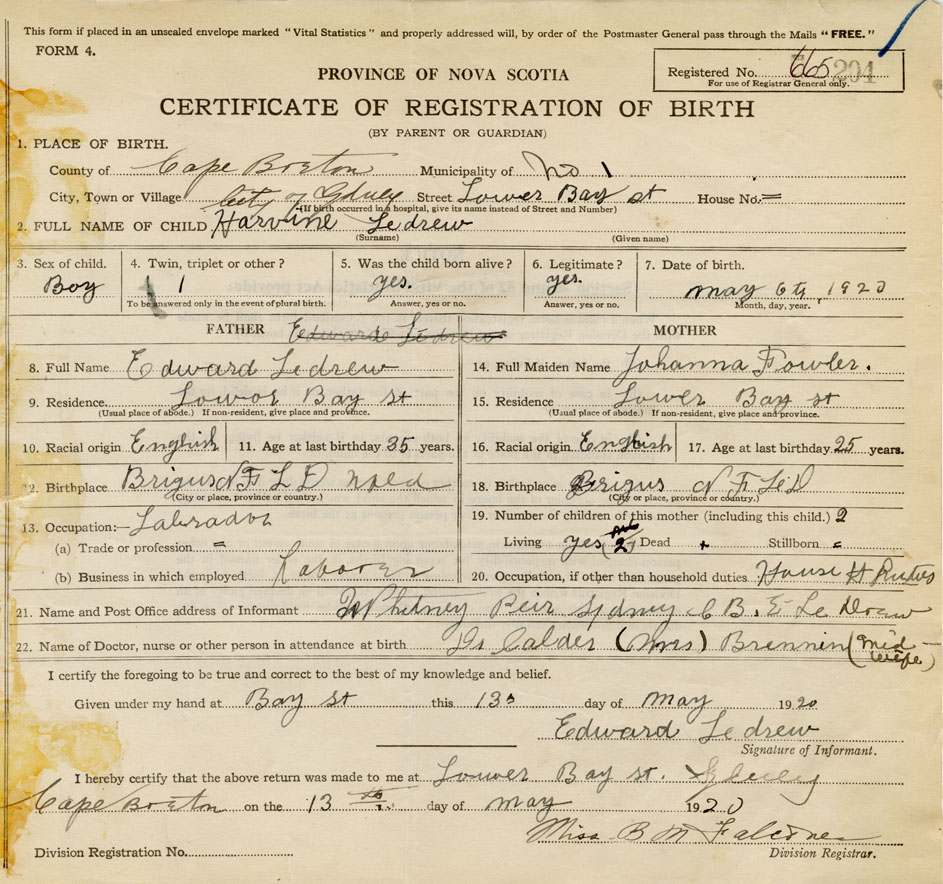 This form if placed in an unsealed envelope marked "Vital Statistics" and properly addressed will, by order of the Postmaster General pass through the Mails "FREE."
FORM 4.
PROVINCE OF NOVA SCOTIA
Registered No. 665 204
For use of Registrar General only.
CERTIFICATE OF REGISTRATION OF BIRTH
(BY PARENT OR GUARDIAN)
1. PLACE OF BIRTH.
County of Cape Breton Municipality of No 1
City, Town or Village City of Sydney Street Lower Bay st House No. =
(If birth occurred in a hospital, give its name instead of Street and Number)
2. FULL NAME OF CHILD Harvine Ledrew
(Surname) (Given name)
3. Sex of child. 4. Twin, triplet or other? 5. Was the child born alive? 6. Legitimate? 7. Date of birth.
Boy 1 1 yes. yes. may 6th, 1920
To be answered only in the event of plural birth. Answer, yes or no. Answer, yes or no. Month, day, year.
FATHER Edward Ledrew MOTHER
8. Full Name Edward Ledrew 14. Full Maiden Name Johanna Fowler.
9. Residence. Lower Bay st 15. Residence Lower Bay st
(Usual place of abode.) If non-resident, give place and province. (Usual place of abode.) If non-resident, give place and province.
10. Racial origin English 11. Age at last birthday 35 years. 16. Racial origin English 17. Age at last birthday 25 years.
12. Birthplace Brigus N F L D nfld 18. Birthplace Brigus N F L D
(City or place, province or country.) (City or place, province or country.)
13. Occupation:— Labrador 19. Number of children of this mother (including this child.) 2
(a) Trade or profession = Living yes (2) Dead + Stillborn =
(b) Business in which employed Laborer 20. Occupation, if other than household duties House H Duties
21. Name and Post Office address of Informant Whitney Peir Sydney C B. E Le Drew
22. Name of Doctor, nurse or other person in attendance at birth Dr Calder (Mrs) Brennin (Mid-wife)
I certify the foregoing to be true and correct to the best of my knowledge and belief.
Given under my hand at Bay st this 13 day of May 1920
Edward Ledrew
Signature of Informant.
I hereby certify that the above return was made to me at Lower Bay st. Sydney
Cape Breton on the 13 th day of May 1920
Miss B M Falconer
Division Registration No. Division Registrar.